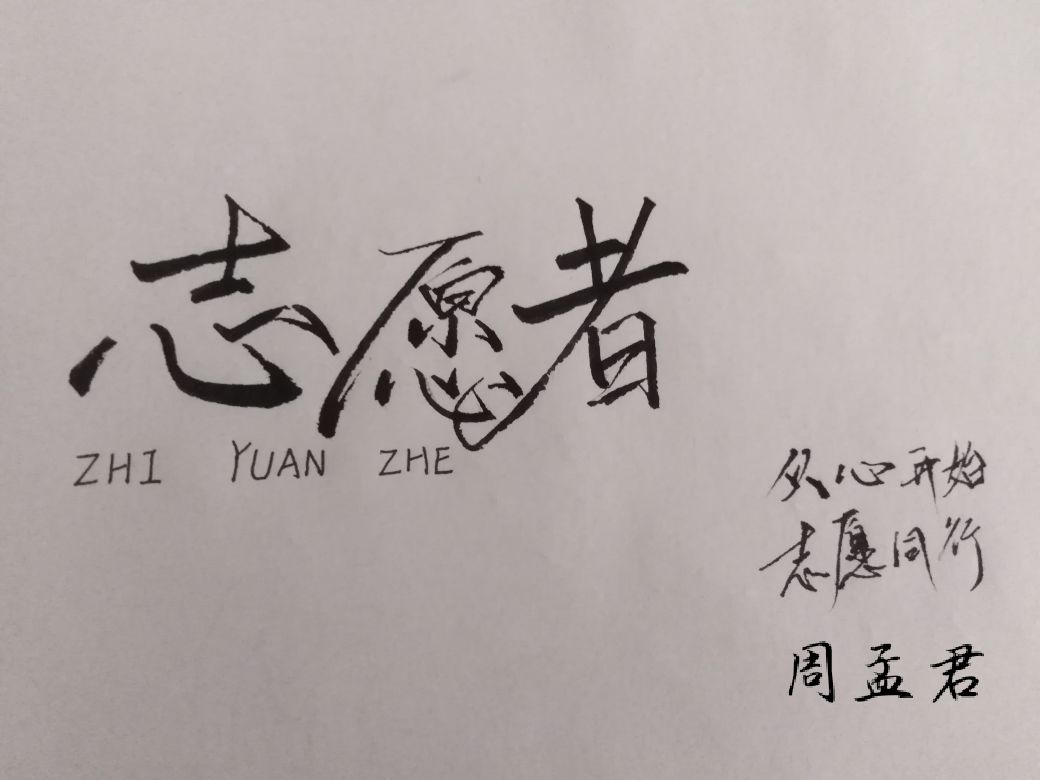 志愿者
ZHI YUAN ZHE
从心开始
志愿同行
周孟君